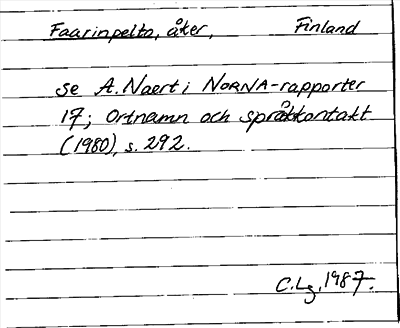 Faarinpelto, åker, Finland
se A. Naert i NORNA-rapporter
17; Ortnamn och språkkontakt
(1980), s. 292.
C. Lg, 1987.